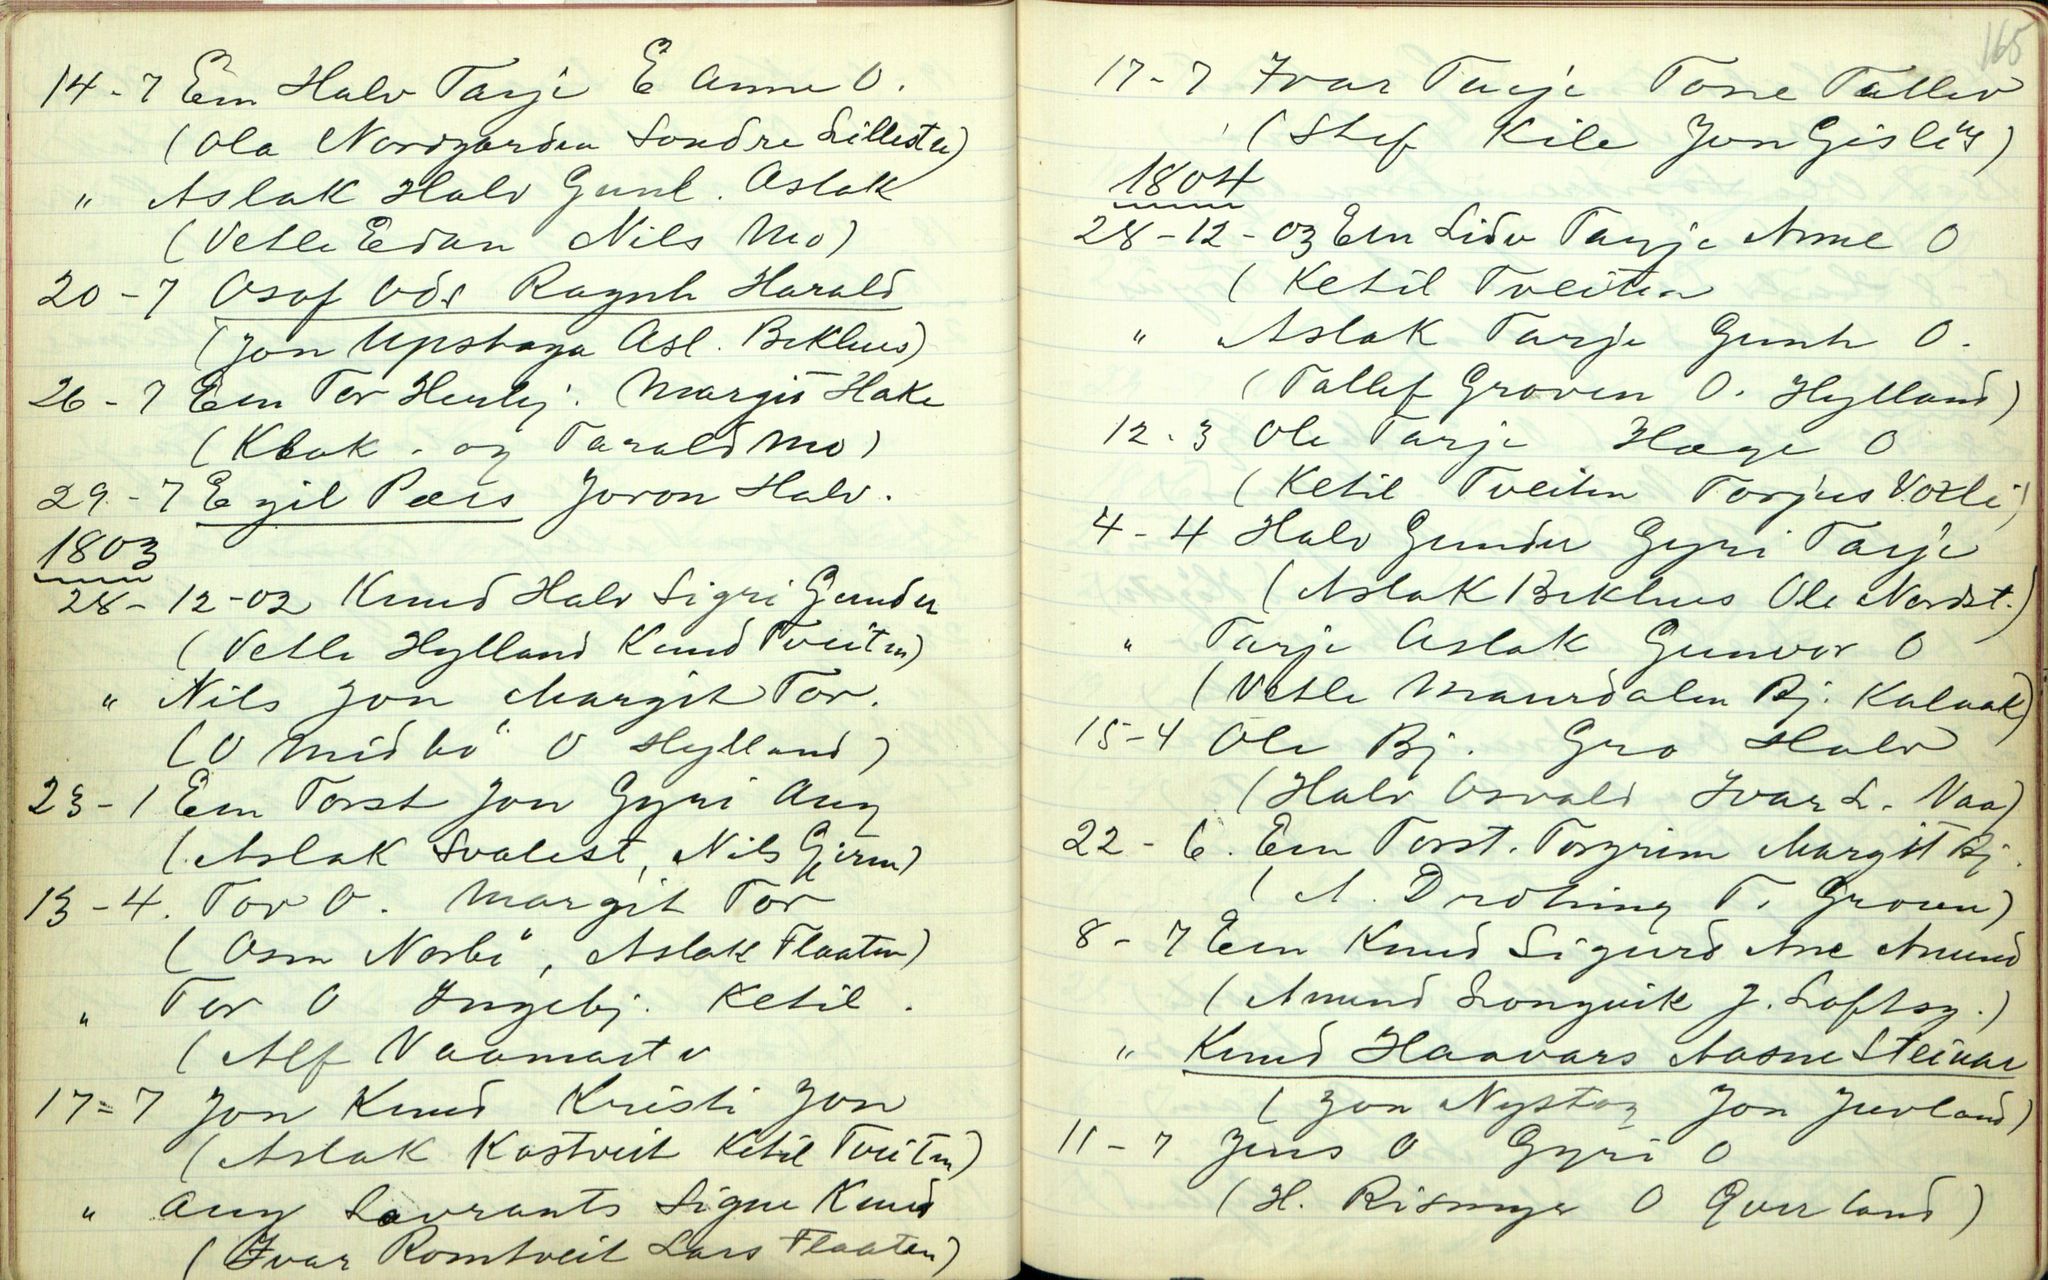 14-7 Em Halv Tarje E Anne O.
(Ola Nordgarden Sondre Lillestu)
" Aslak Halv Gunl. Aslak
(Vetle Edan Nils Mo)
20-7 Osaf Ods Ragnh Harald
(Jon Upstaga Asl. Bekhus)
26-7 Em Tor Herbj. Margit Hake
(Kbak. og Tarald Mo)
29-7 Egil Pæls Joron Halv.
1803
28-12-02 Knud Halv Sigri Gunder
(Vetle Hylland Knud Tveiten)
" Nils Jon Margit Tor.
(O Midbö O Hylland)
23-1 Em Torst Jon Gyri Aug
(Aslak Svalest, Nils Gjerm)
13-4. Tor O. Margit Tor
(Osm Norbö, Aslak Flaaten)
" Tor O Ingebj. Ketil.
(Alf Vaamartv
17=7 Jon Knud Kristi Jon
(Aslak Kostveit Ketil Tveiten)
" Aug Lavrants Signe Knud
(Ivar Romtveit Lars Flaaten)
165
17-7 Ivar Tarje Tone Tallev
(Stef Kile Jon Gisl)
1804
28-12-03 Em Lidv Tarje Anne O
(Ketil Tveiten
" Aslak Tarje Gunh O.
(Tallef Groven O. Hylland)
12-3 Ole Tarje Hæge O
(Ketil Tveiten Torjus Voxli)
4-4 Halv Gunder Gyri Tarje
(Aslak Bekhus Ole Nordst.)
" Tarje Aslak Gunvor O
(Vetle Maurdalen Bj. Kalaak)
15-4 Ole Bj. Gro Halv
(Halv Osvald Ivar L. Vaa)
22-6. Em Torst. Torgrim Margit Bj.
(A. Drotning T. Groven)
8-7 Em Knud Sigurd Ane Amund
(Amund Longvik J. Loftsg.)
" Knud Haavars Aasne Steinar
(Jon Nystog Jon Juvland)
11-7 Jens O Gyri O
(H. Rismyr O Qverland)